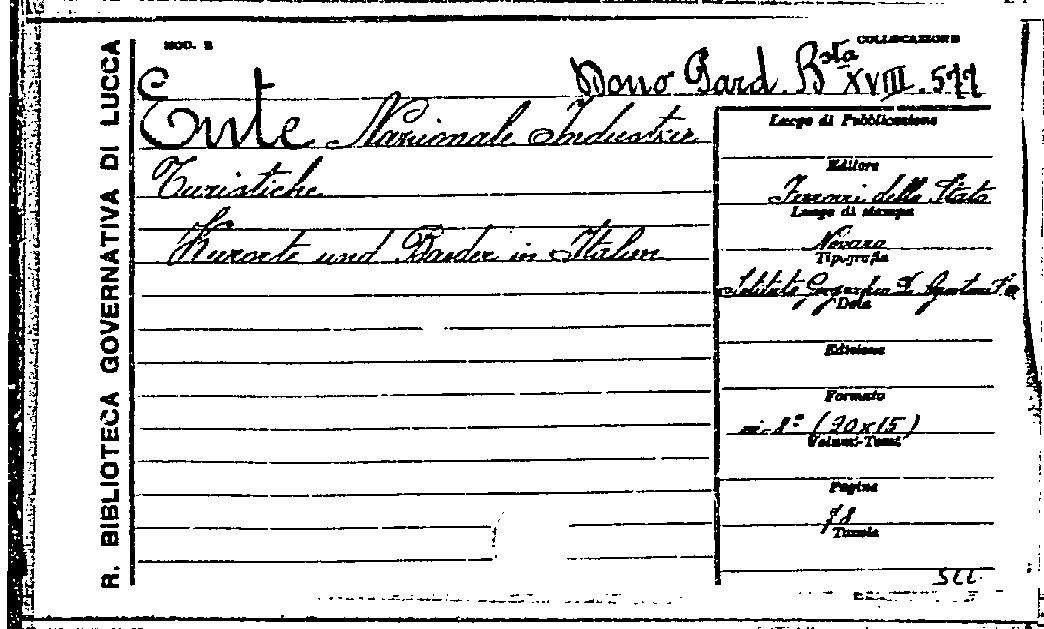 R. BIBLIOTECA GOVERNATIVA DI LUCCA
MOD. B
COLLOCAZIONE
Dono Pard. Bsta XVIII. 577
Ente Nazionale Industrie
Turistiche
Kurorte und Baeder in Italien
Luogo di Pubblicazione
Editore
Ferrovie dello Stato
Luogo di stampa
Novara
Tipografia
Istituto Geografico De Agostini
Data
Edizione
Formato
in-8° (20x15)
Volumi-Tomi
Pagine
78
Tavole